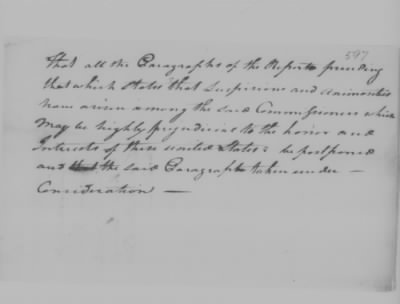 597
That all the Paragraphs of the Report preceeding
that which States "that Suspicions and animosities
have arisen among the said Commissioners which
may be highly prejudicial to the honor and
Interests of these united States: be postponed
and that the said Paragraph taken under —
Consideration —